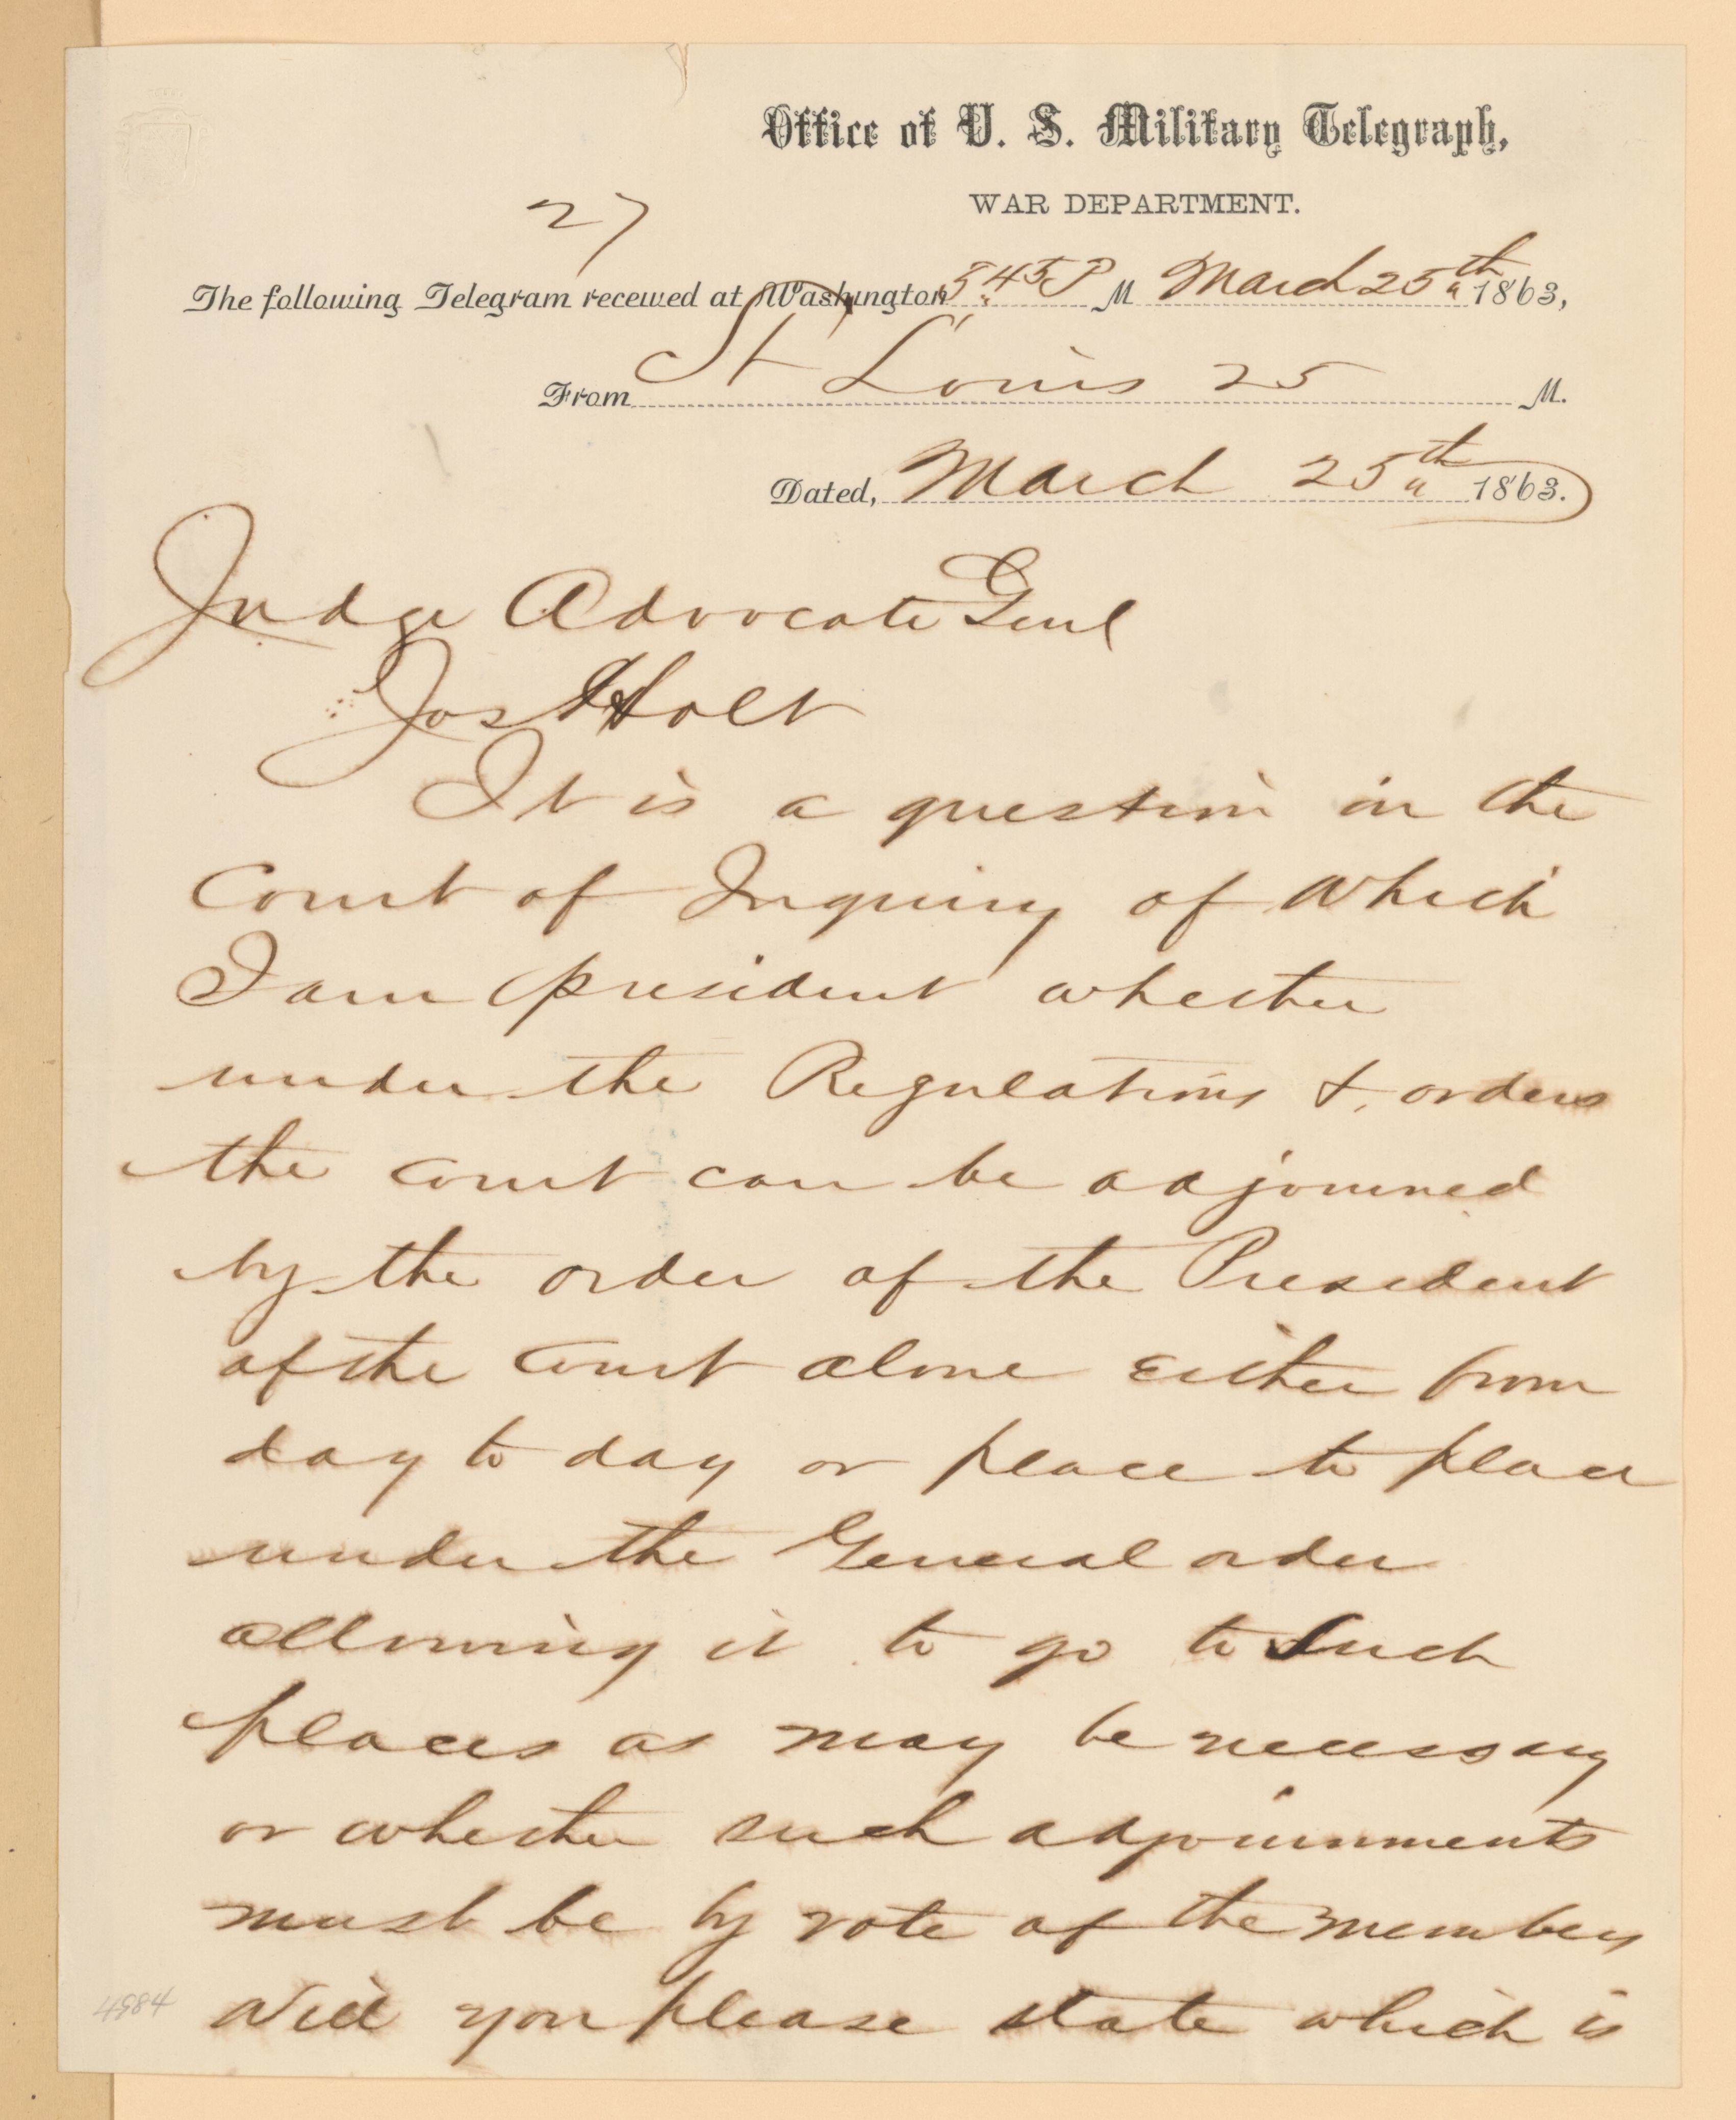 Office of U. S. Military Telegraph,
WAR DEPARTMENT.
27
The following Telegram received at Washington 5 45 P M March 25th 1863,
From St Louis 25 M.
Dated, March 25th 1863.
Judge Advocate Genl
Jos Holt
It is a question in the
Court of Inquiry of which
I am president whether
under the Regulations & orders
the court can be adjourned
by the order of the President
of the court alone either from
day to day or place to place
under the General order
allowing it to go to such
places as may be necessary
or whether such adjournments
must be by vote of the members
Will you please state which is
4984